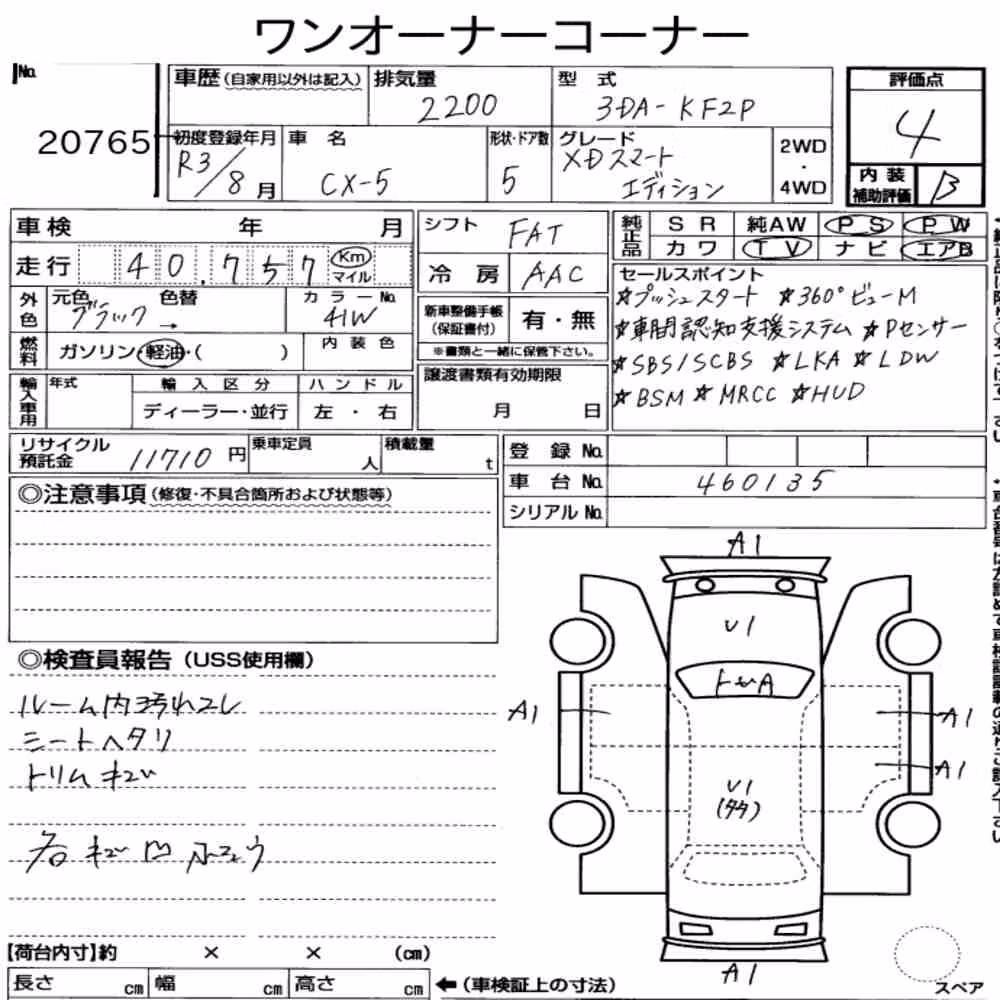 ワンオーナーコーナー
No. 20765
車歴(自家用以外は記入) 排気量 2200 型式 3DA-KF2P
初度登録年月 R3/8月 車名 CX-5 形状・ドア数 5 グレード XDスマートエディション 2WD・4WD
評価点 4
内装補助評価 B
車検 年 月
走行 40,757 Km マイル
外色 元色 ブラック 色替 → カラーNo. 41W
燃料 ガソリン・軽油・( ) 内装色
輸入車用 年式 輸入区分 ディーラー・並行 ハンドル 左・右
シフト FAT
冷房 AAC
新車整備手帳(保証書付) 有・無
※書類と一緒に保管下さい。
譲渡書類有効期限 月 日
純正品 SR 純AW PS PW
カワ TV ナビ エアB
セールスポイント
☆プッシュスタート ☆360°ビューM
☆車間認知支援システム ☆Pセンサー
☆SBS/SCBS ☆LKA ☆LDW
☆BSM ☆MRCC ☆HUD
リサイクル預託金 11710円 乗車定員 人 積載量 t
登録No.
車台No. 460135
シリアルNo.
◎注意事項(修復・不具合箇所および状態等)
◎検査員報告(USS使用欄)
ルーム内汚れコレ
シートヘタリ
トリムキズ
各キズ凹
A1
U1
A1
A1
A1
U1
A1
【荷台内寸】約 × × (cm)
長さ cm 幅 cm 高さ cm ←(車検証上の寸法)
スペア